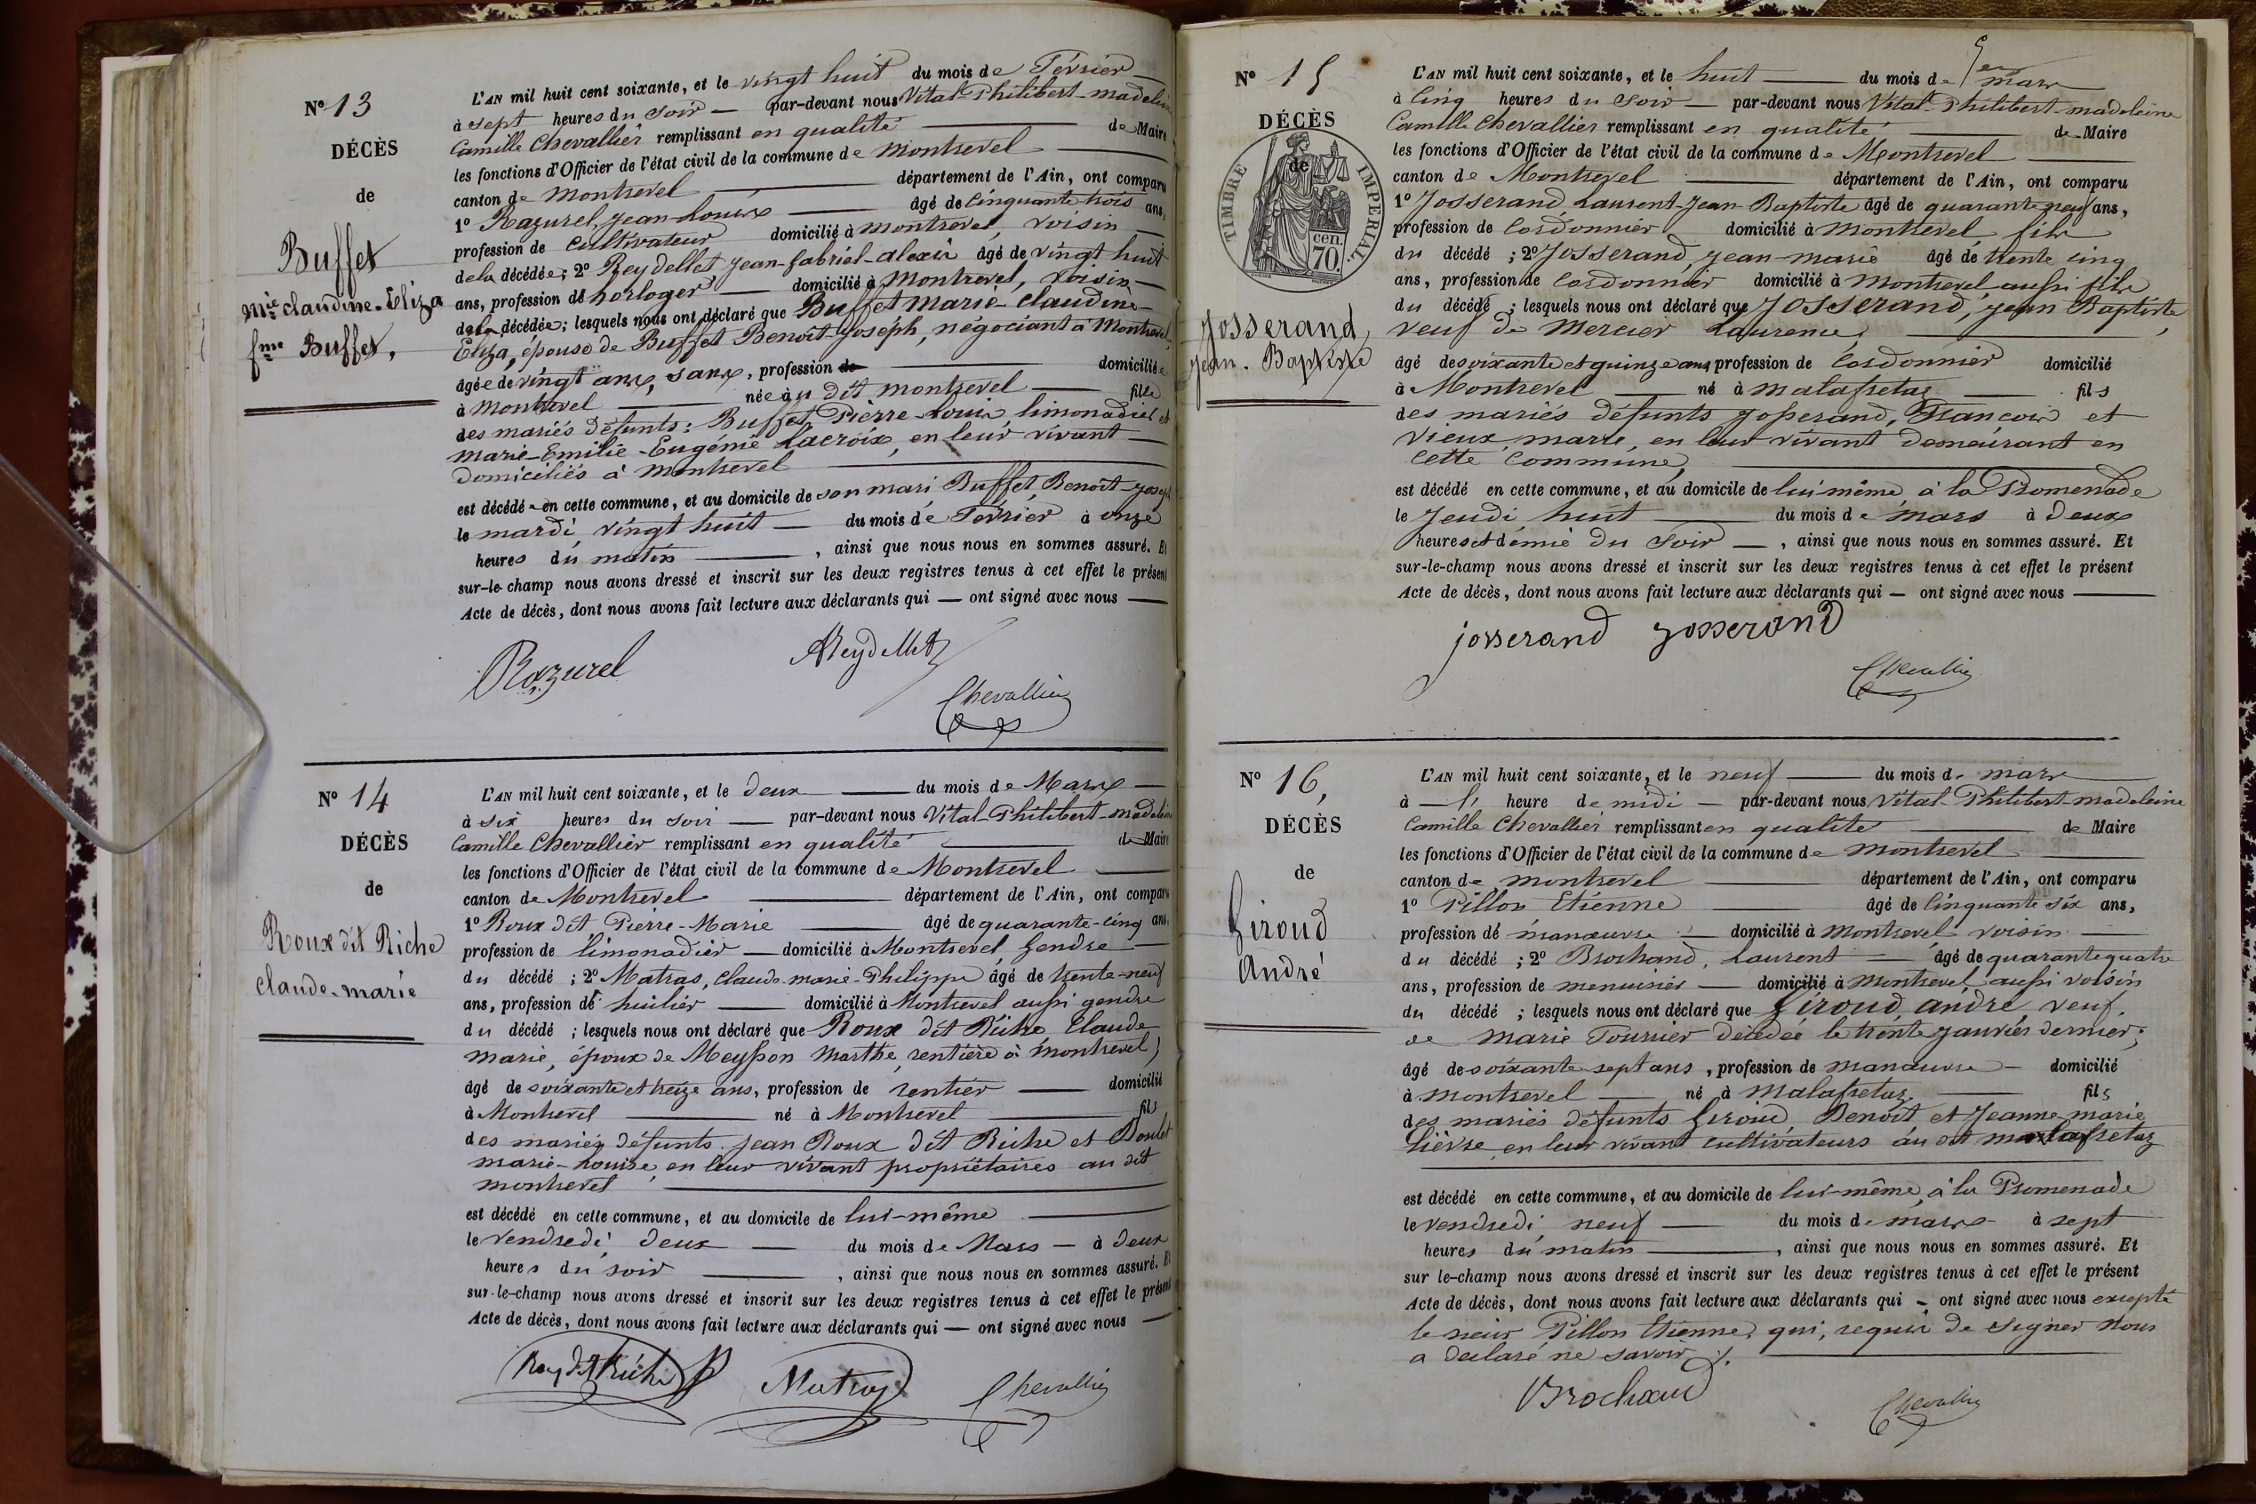 N° 13
DÉCÈS
de
Buffet
Mie claudine-Eliza
fme Buffet,
L'AN mil huit cent soixante, et le vingt huit du mois de Février
à sept heures du soir par-devant nous Vital-Philibert-madeleine
Camille Chevallier remplissant en qualité de Maire
les fonctions d'Officier de l'état civil de la commune de Montrevel
canton de Montrevel département de l'Ain, ont comparu
1° Razurel, Jean-Louis âgé de Cinquante trois ans,
profession de Cultivateur domicilié à Montrevel, voisin
de la décédée; 2° Reydellet, Jean-Gabriel-alexis âgé de vingt huit
ans, profession de horloger domicilié à Montrevel, voisin
de la décédée; lesquels nous ont déclaré que Buffet Marie-Claudine
Eliza, épouse de Buffet Benoît-Joseph, négociant à Montrevel,
âgée de vingt ans, sans, profession de domiciliée
à Montrevel née au dit Montrevel fille
des mariés défunts: Buffet Pierre-Louis limonadier et
Marie-Emilie-Eugénie Lacroix, en leur vivant
domiciliés à Montrevel
est décédée en cette commune, et au domicile de son mari Buffet, Benoît-Joseph
le mardi vingt huit du mois de Février à onze
heures du matin, ainsi que nous nous en sommes assuré. Et
sur-le-champ nous avons dressé et inscrit sur les deux registres tenus à cet effet le présent
Acte de décès, dont nous avons fait lecture aux déclarants qui — ont signé avec nous
Razurel
AReydellet
Chevallier
N° 14
DÉCÈS
de
Roux dit Riche
claude-marie
L'AN mil huit cent soixante, et le deux du mois de Mars
à six heures du soir par-devant nous Vital-Philibert-madeleine
Camille Chevallier remplissant en qualité de Maire
les fonctions d'Officier de l'état civil de la commune de Montrevel
canton de Montrevel département de l'Ain, ont comparu
1° Roux dit, Pierre-Marie âgé de quarante-cinq ans,
profession de limonadier domicilié à Montrevel, gendre
du décédé; 2° Matras, Claude-marie-Philippe âgé de trente-neuf
ans, profession de huilier domicilié à Montrevel, aussi gendre
du décédé; lesquels nous ont déclaré que Roux dit Riche Claude
marie, époux de Meysson Marthe, rentière à Montrevel,
âgé de soixante et treize ans, profession de rentier domicilié
à Montrevel né à Montrevel fils
des mariés défunts Jean Roux dit Riche et
marie-Louise, en leur vivant propriétaires au dit
montrevel
est décédé en cette commune, et au domicile de lui-même
le vendredi deux du mois de Mars à deux
heures du soir, ainsi que nous nous en sommes assuré. Et
sur-le-champ nous avons dressé et inscrit sur les deux registres tenus à cet effet le présent
Acte de décès, dont nous avons fait lecture aux déclarants qui — ont signé avec nous
Matras
Chevallier
N° 15
DÉCÈS
de
TIMBRE IMPERIAL
cen. 70.
Josserand,
Jean-Baptiste
L'AN mil huit cent soixante, et le huit du mois de mars
à cinq heures du soir par-devant nous Vital-Philibert-madeleine
Camille Chevallier remplissant en qualité de Maire
les fonctions d'Officier de l'état civil de la commune de Montrevel
canton de Montrevel département de l'Ain, ont comparu
1° Josserand Laurent-Jean-Baptiste âgé de quarante neuf ans,
profession de Cordonnier domicilié à Montrevel, fils
du décédé; 2° Josserand, Jean-marie âgé de trente cinq
ans, profession de Cordonnier domicilié à Montrevel aussi fils
du décédé; lesquels nous ont déclaré que Josserand, Jean Baptiste
veuf de Mercier Laurence,
âgé de soixante et quinze ans, profession de Cordonnier domicilié
à Montrevel né à malafretaz fils
des mariés défunts Josserand, François et
Vieux, marie, en leur vivant demeurant en
cette Commune,
est décédé en cette commune, et au domicile de lui même, à la Promenade
le Jeudi huit du mois de mars à deux
heures et demie du soir, ainsi que nous nous en sommes assuré. Et
sur-le-champ nous avons dressé et inscrit sur les deux registres tenus à cet effet le présent
Acte de décès, dont nous avons fait lecture aux déclarants qui — ont signé avec nous
josserand josserand
Chevallier
N° 16,
DÉCÈS
de
Giroud
André
L'AN mil huit cent soixante, et le neuf du mois de mars
à heure de midi par-devant nous Vital-Philibert-madeleine
Camille Chevallier remplissant en qualité de Maire
les fonctions d'Officier de l'état civil de la commune de Montrevel
canton de montrevel département de l'Ain, ont comparu
1° Pillon Etienne âgé de Cinquante six ans,
profession de manœuvre domicilié à Montrevel voisin
du décédé; 2° Brochand, Laurent âgé de quarante quatre
ans, profession de menuisier domicilié à Montrevel, aussi voisin
du décédé; lesquels nous ont déclaré que Giroud, andré veuf
de Marie Fournier décédée le trente janvier dernier;
âgé de soixante sept ans, profession de manœuvre domicilié
à montrevel né à Malafretaz fils
des mariés défunts Giroud, Benoît et Jeanne-marie
Lièvre, en leur vivant cultivateurs au dit malafretaz
est décédé en cette commune, et au domicile de lui-même, à la Promenade
le vendredi neuf du mois de mars à sept
heures du matin, ainsi que nous nous en sommes assuré. Et
sur le-champ nous avons dressé et inscrit sur les deux registres tenus à cet effet le présent
Acte de décès, dont nous avons fait lecture aux déclarants qui — ont signé avec nous excepté
le sieur Pillon Etienne, qui, requis de signer nous
a déclaré ne savoir ./.
Brochand
Chevallier